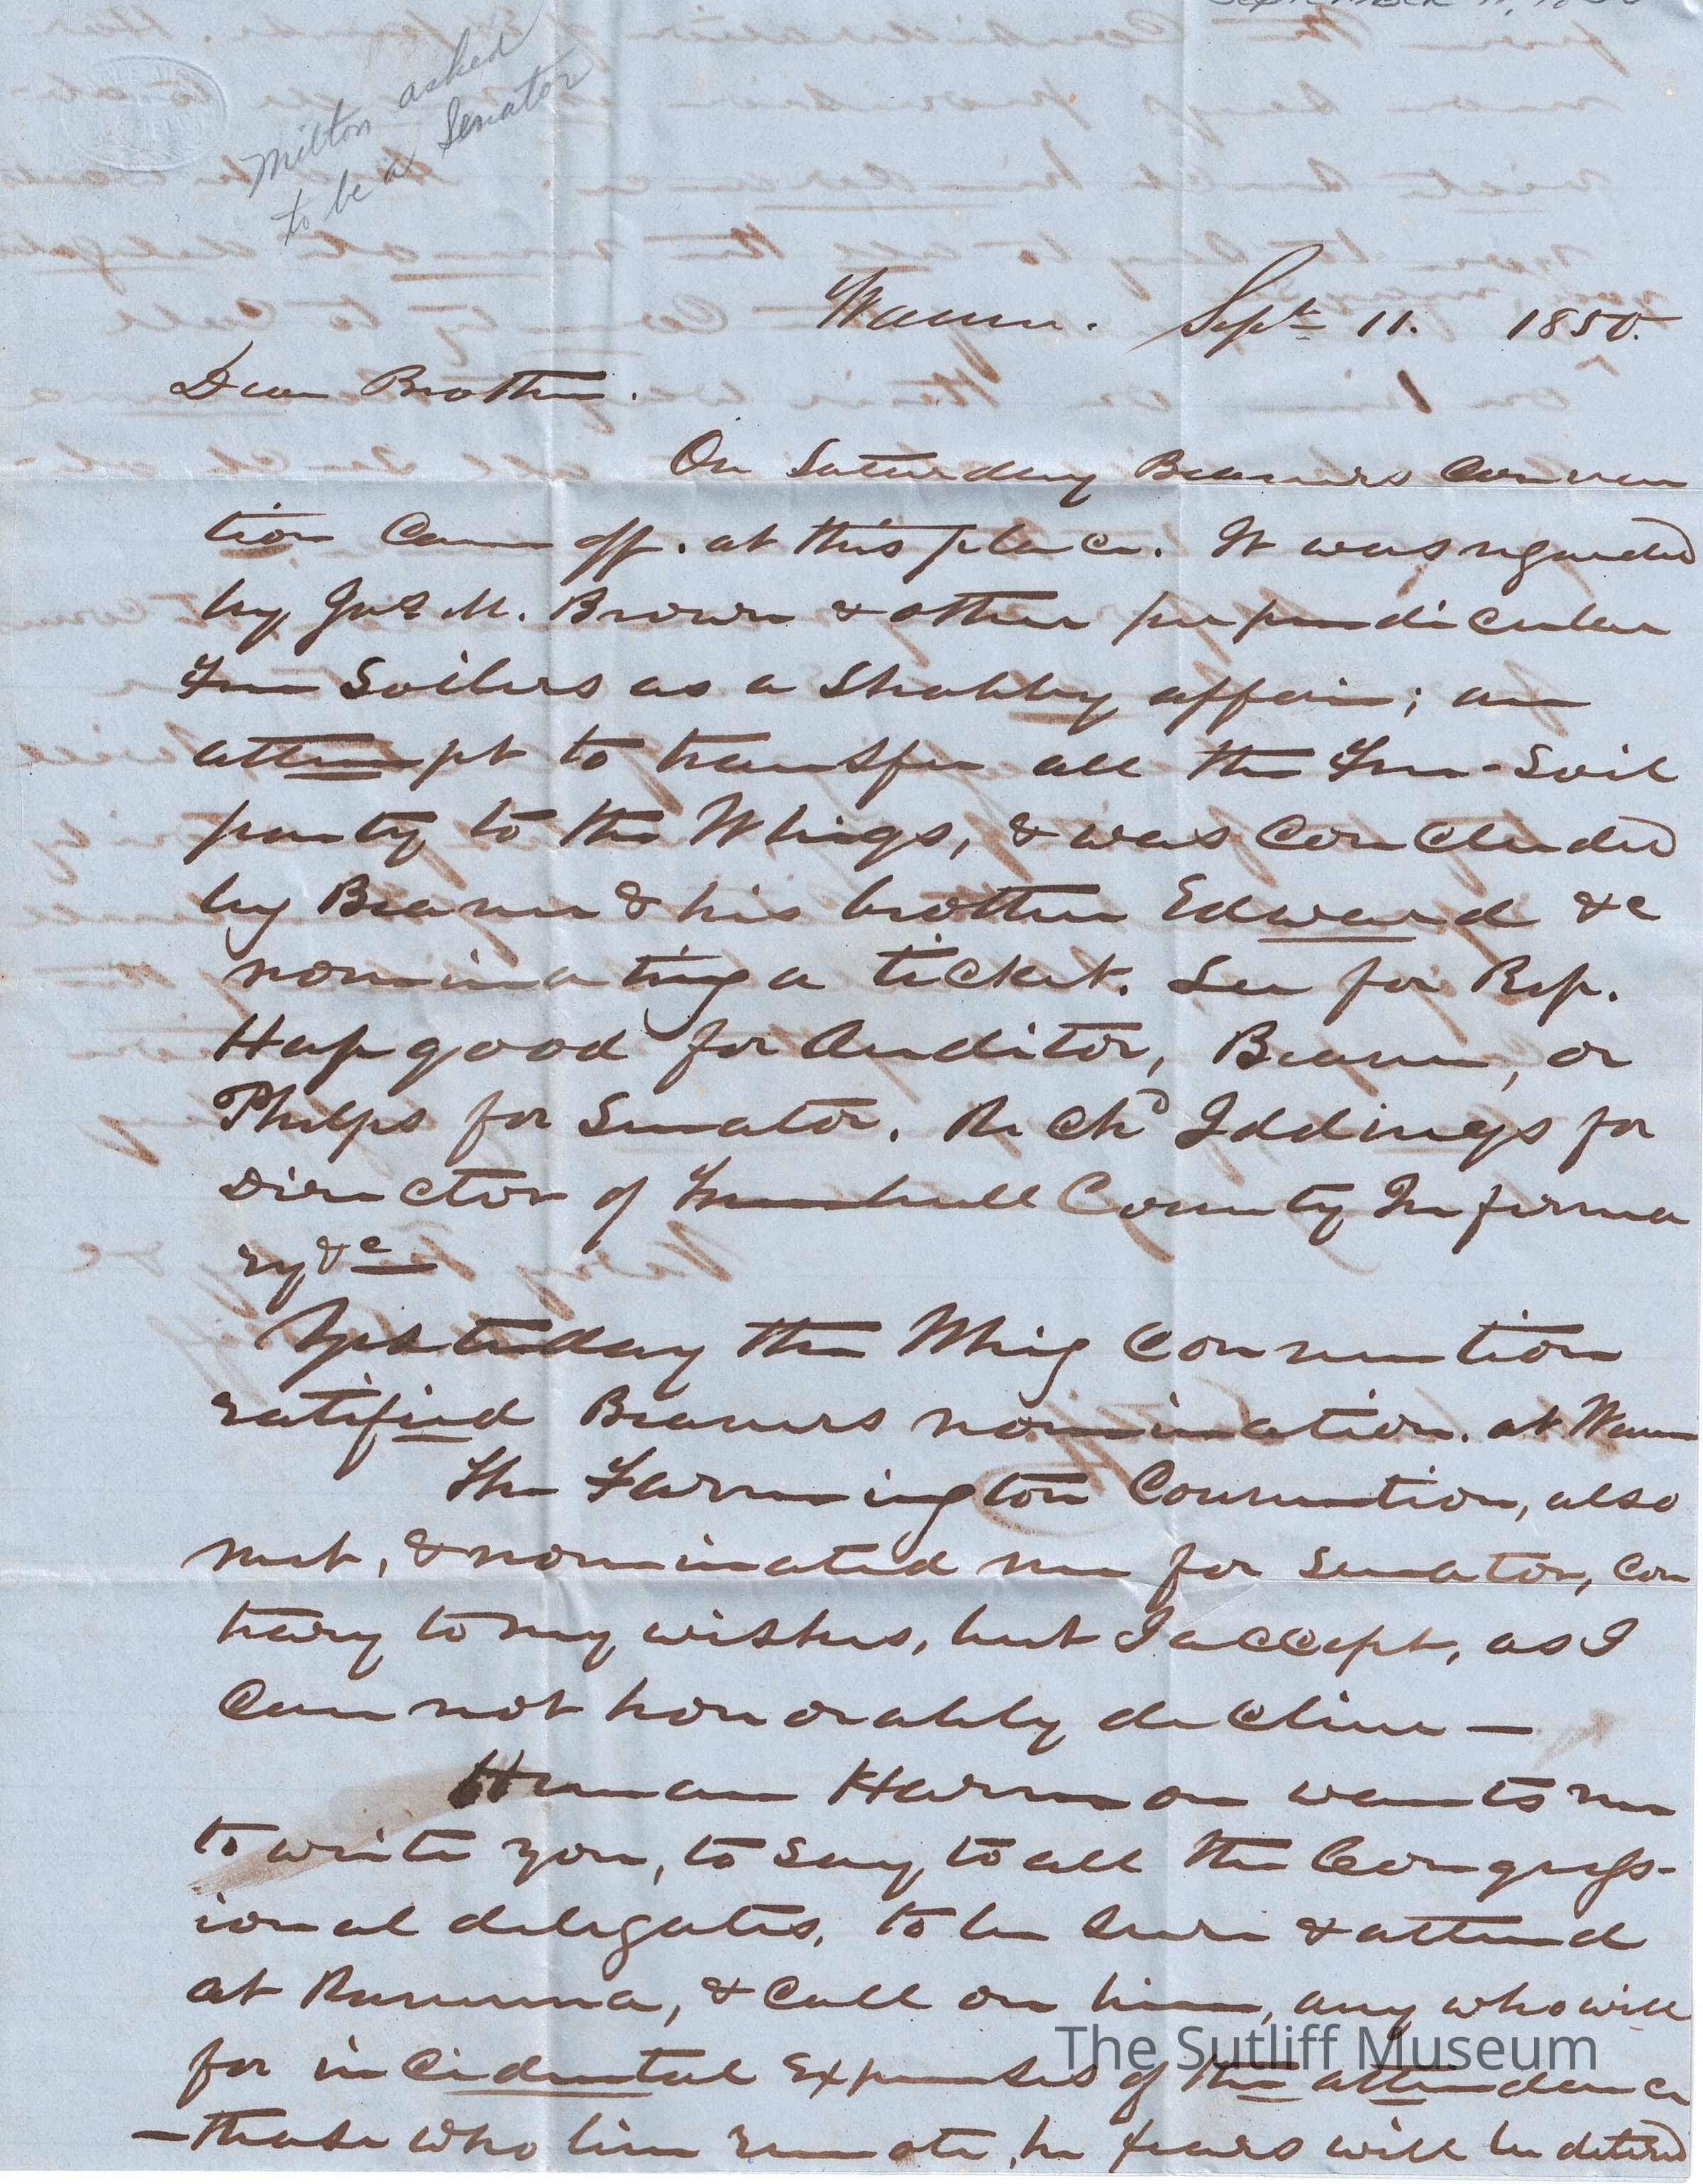 Milton asked
to be a Senator
Warren. Sept 11. 1850.
Dear Brother.
On Saturday Beavers Conven
tion Came off. at this place. It was regarded
by Jno M. Brown & other perpendicular
Free Soilers as a Shabby affair; an
attempt to transfer all the Free-Soil
party to the Whigs, & was Concluded
by Beaver & his brother Edward &c
nominating a ticket. Lee for Rep.
Hapgood for Auditor, Beaver, or
Phelps for Senator. Richd Iddings for
Director of Trumbull County Infirma
ry &c
Yesterday the Whig Convention
ratified Beavers nomination. at Warren
The Farmington Convention, also
met, & nominated me for Senator, Con
trary to my wishes, but I accept, as I
Can not honorably decline —
Heman Harmon wants me
to write you, to say to all the Congress-
ional delegates, to be sure & attend
at Ravenna, & Call on him, any who will
for incidental Expenses of the attendance
— those who live remote, he fears will be deterd
The Sutliff Museum